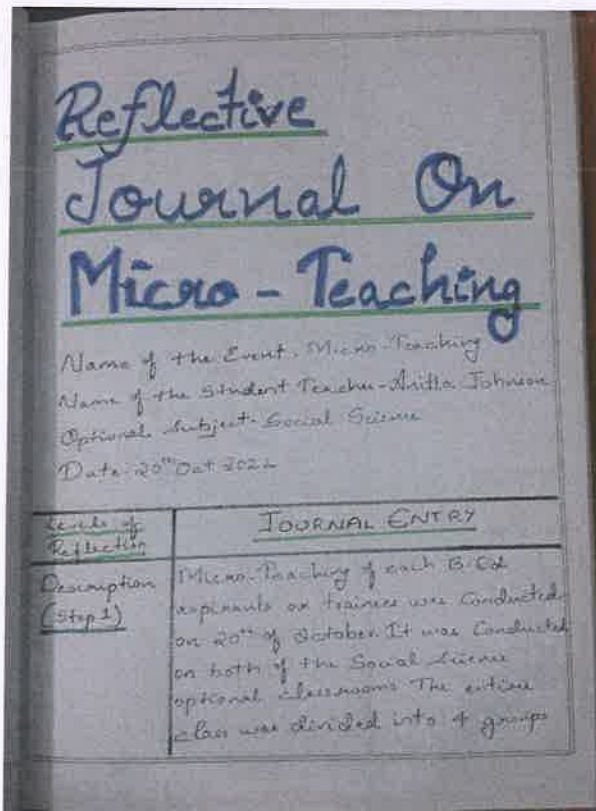 Reflective
Journal On
Micro-Teaching
Name of the Event. Micro-Teaching
Name of the Student Teacher-Anitta Johnson
Optional Subject-Social Science
Date: 20th Oct 2022
Levels of
Reflection
JOURNAL ENTRY
Description
(Step 1)
Micro-Teaching of each B.Ed
aspirants or trainees was conducted
on 20th of October. It was conducted
on both of the Social Science
optional classrooms. The entire
class was divided into 4 groups